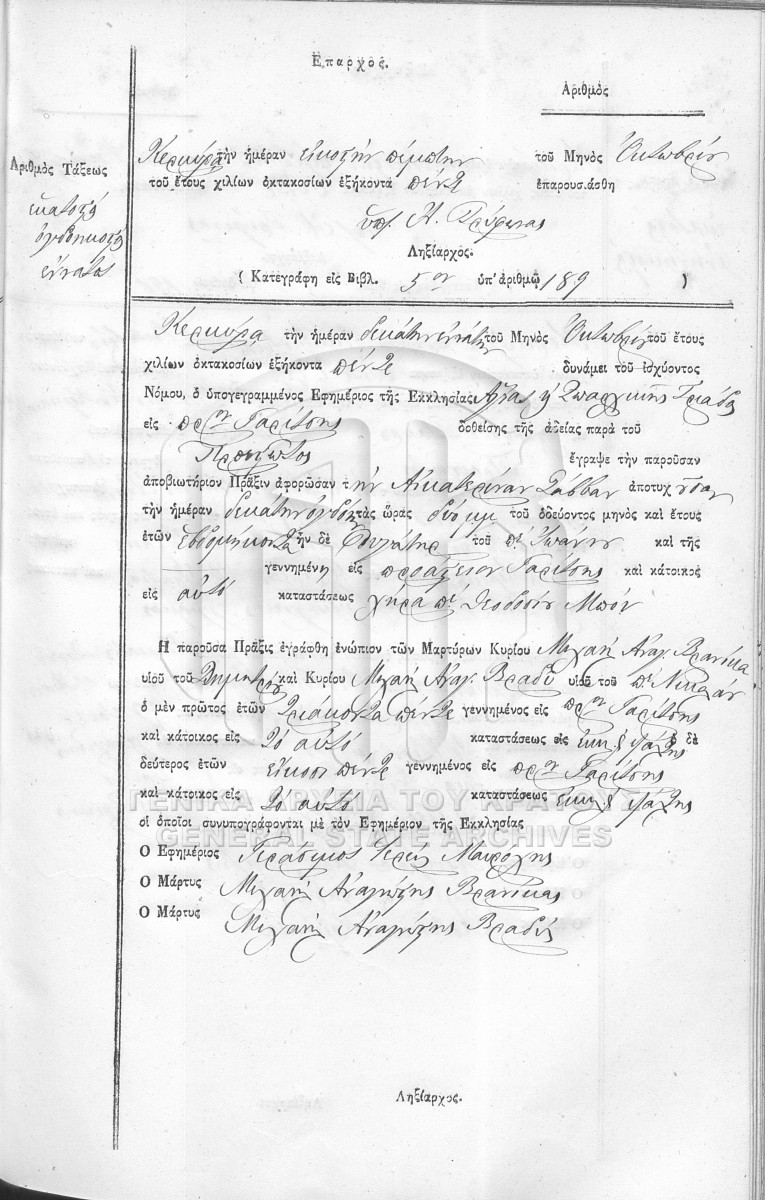 Ἔπαρχος.
Ἀριθμὸς
Ἀριθμὸς Τάξεως
ἑκατοστὴ
ὀγδοηκοστὴ
ἐννάτος
Κερκύρα τὴν ἡμέραν εἰκοστὴν πέμπτην τοῦ Μηνὸς Ὀκτωβρίου
τοῦ ἔτους χιλίων ὀκτακοσίων ἑξήκοντα πέντε ἐπαρουσιάσθη
ὑπ.
Ληξίαρχος.
( Κατεγράφη εἰς Βιβλ. 5ον ὑπ' ἀριθμῷ 189 )
Κερκύρα τὴν ἡμέραν δεκάτην ἐννάτην τοῦ Μηνὸς Ὀκτωβρίου τοῦ ἔτους
χιλίων ὀκτακοσίων ἑξήκοντα πέντε δυνάμει τοῦ ἰσχύοντος
Νόμου, ὁ ὑπογεγραμμένος Ἐφημέριος τῆς Ἐκκλησίας Ἁγίας Τριάδος
εἰς πρ.ον Γαρίτσης δοθείσης τῆς ἀδείας παρὰ τοῦ
ἔγραψε τὴν παροῦσαν
ἀποβιωτήριον Πρᾶξιν ἀφορῶσαν τὴν Αἰκατερίναν Σάββαν ἀποτυχοῦσαν
τὴν ἡμέραν δεκάτην ὀγδόην τὰς ὥρας δύο μμ τοῦ ὁδεύοντος μηνὸς καὶ ἔτους
ἐτῶν ἑβδομήκοντα ἣν δὲ θυγάτηρ τοῦ π.ὲ Ἰωάννου καὶ τῆς
γεννημένη εἰς προάστειον Γαρίτσης καὶ κάτοικος
εἰς αὐτό καταστάσεως χήρα π.ὲ Θεοδοσίου Μπόν
Ἡ παροῦσα Πρᾶξις ἐγράφθη ἐνώπιον τῶν Μαρτύρων Κυρίου Μιχαὴλ Ἀναγ. Βρανίκα
υἱοῦ τοῦ Δημητρίου καὶ Κυρίου Μιχαὴλ Ἀναγ. Βραδῆ υἱοῦ τοῦ π.ὲ Νικολάου
ὁ μὲν πρῶτος ἐτῶν τριάκοντα πέντε γεννημένος εἰς πρ.ον Γαρίτσης
καὶ κάτοικος εἰς τὸ αὐτό καταστάσεως εἰς ὁ δὲ
δεύτερος ἐτῶν εἴκοσι πέντε γεννημένος εἰς πρ.ον Γαρίτσης
καὶ κάτοικος εἰς τὸ αὐτό καταστάσεως
οἱ ὁποῖοι συνυπογράφονται μὲ τὸν Ἐφημέριον τῆς Ἐκκλησίας
Ὁ Ἐφημέριος Γεράσιμος Ἱερεὺς
Ὁ Μάρτυς Μιχαὴλ Ἀναγνώστης Βρανίκας
Ὁ Μάρτυς Μιχαὴλ Ἀναγνώστης Βραδῆς
ΓΕΝΙΚΑ ΑΡΧΕΙΑ ΤΟΥ ΚΡΑΤΟΥΣ
GENERAL STATE ARCHIVES
Ληξίαρχος.